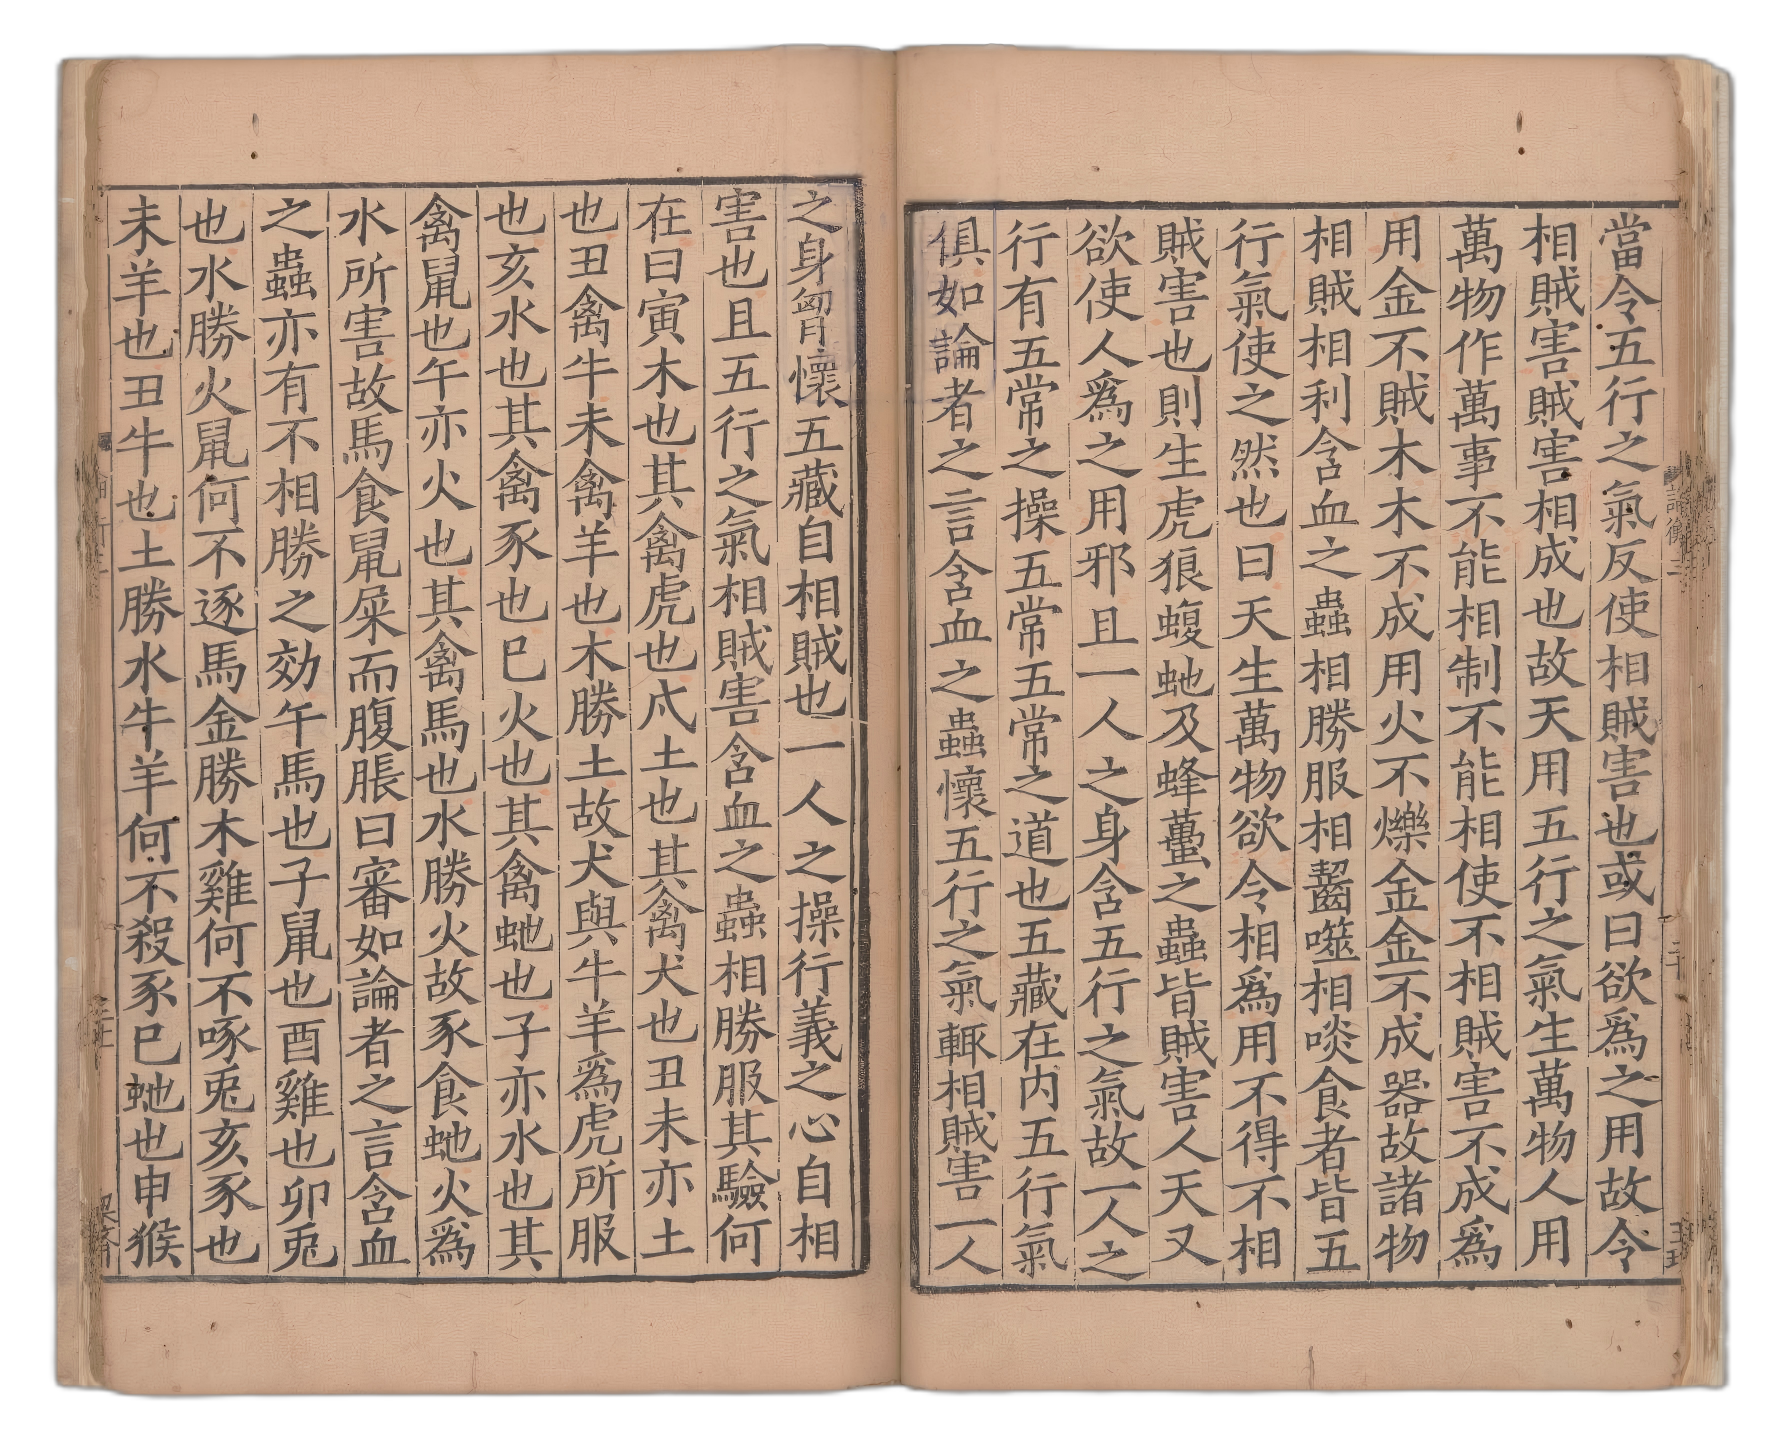 當令五行之氣反使相賊害也或曰欲爲之用故令
相賊害賊害相成也故天用五行之氣生萬物人用
萬物作萬事不能相制不能相使不相賊害不成爲
用金不賊木木不成用火不爍金金不成器故諸物
相賊相利含血之蟲相勝服相齧噬相啖食者皆五
行氣使之然也曰天生萬物欲令相爲用不得不相
賊害也則生虎狼蝮虵及蜂蠆之蟲皆賊害人天又
欲使人爲之用邪且一人之身含五行之氣故一人之
行有五常之操五常五常之道也五藏在内五行氣
俱如論者之言含血之蟲懷五行之氣輒相賊害一人
之身胷懷五藏自相賊也一人之操行義之心自相
害也且五行之氣相賊害含血之蟲相勝服其驗何
在曰寅木也其禽虎也戌土也其禽犬也丑未亦土
也丑禽牛未禽羊也木勝土故犬與牛羊爲虎所服
也亥水也其禽豕也巳火也其禽虵也子亦水也其
禽鼠也午亦火也其禽馬也水勝火故豕食虵火爲
水所害故馬食鼠屎而腹脹曰審如論者之言含血
之蟲亦有不相勝之効午馬也子鼠也酉雞也卯兎
也水勝火鼠何不逐馬金勝木雞何不啄兎亥豕也
未羊也丑牛也土勝水牛羊何不殺豕巳虵也申猴